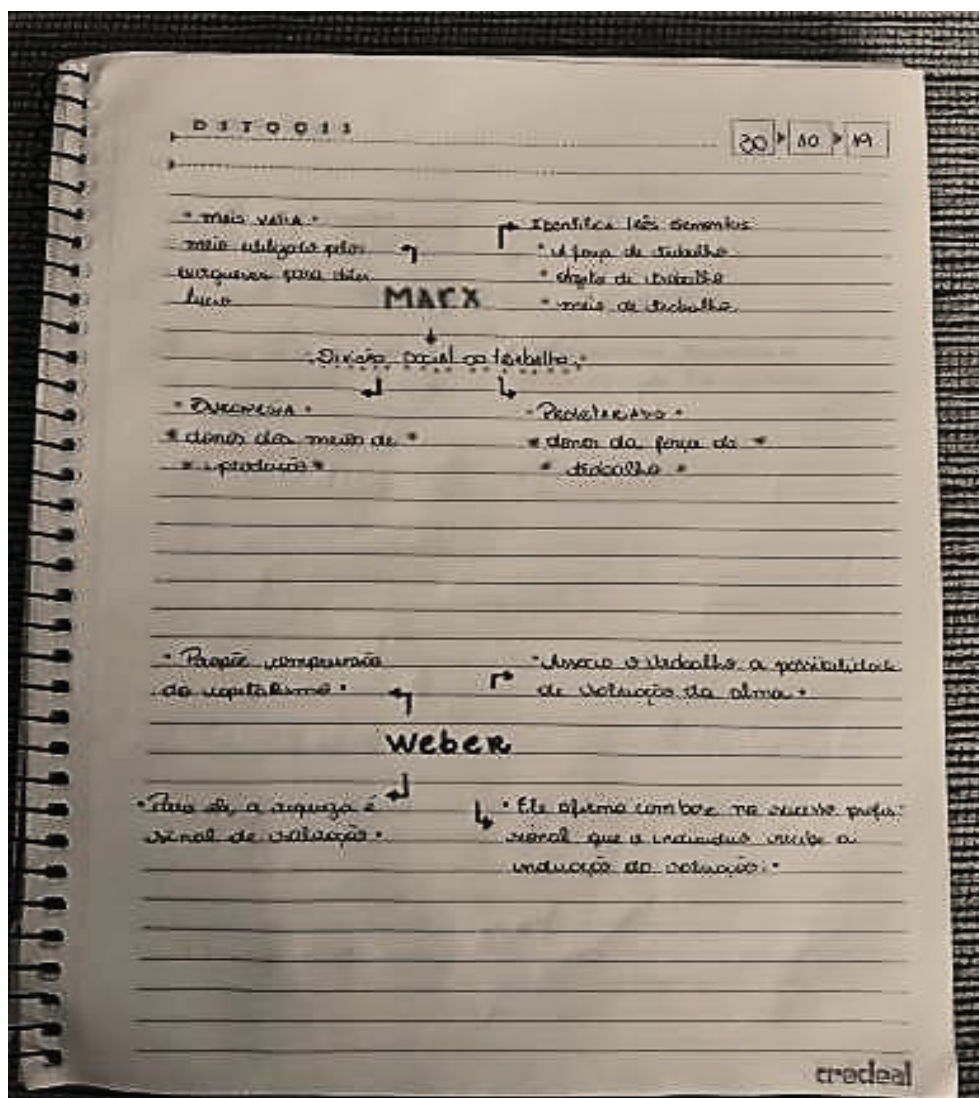 D S T Q Q S S
30 10 19
• mais valia •
meio utilizado pelos
burgueses para obter
lucro
Identifica três elementos
• A força de trabalho
• objeto de trabalho
• meio de trabalho
MARX
• Divisão social do trabalho •
• BURGUESIA •
* donos dos meios de *
* produção *
• PROLETARIADO •
* donos da força de *
* trabalho *
• Propõe compreensão
do capitalismo •
• Associa o trabalho a possibilidade
de salvação da alma •
Weber
• Para ele, a riqueza é
sinal de salvação •
• Ele afirma com base no sucesso profis
sional que o individuo recebe a
da salvação. •
tredeal